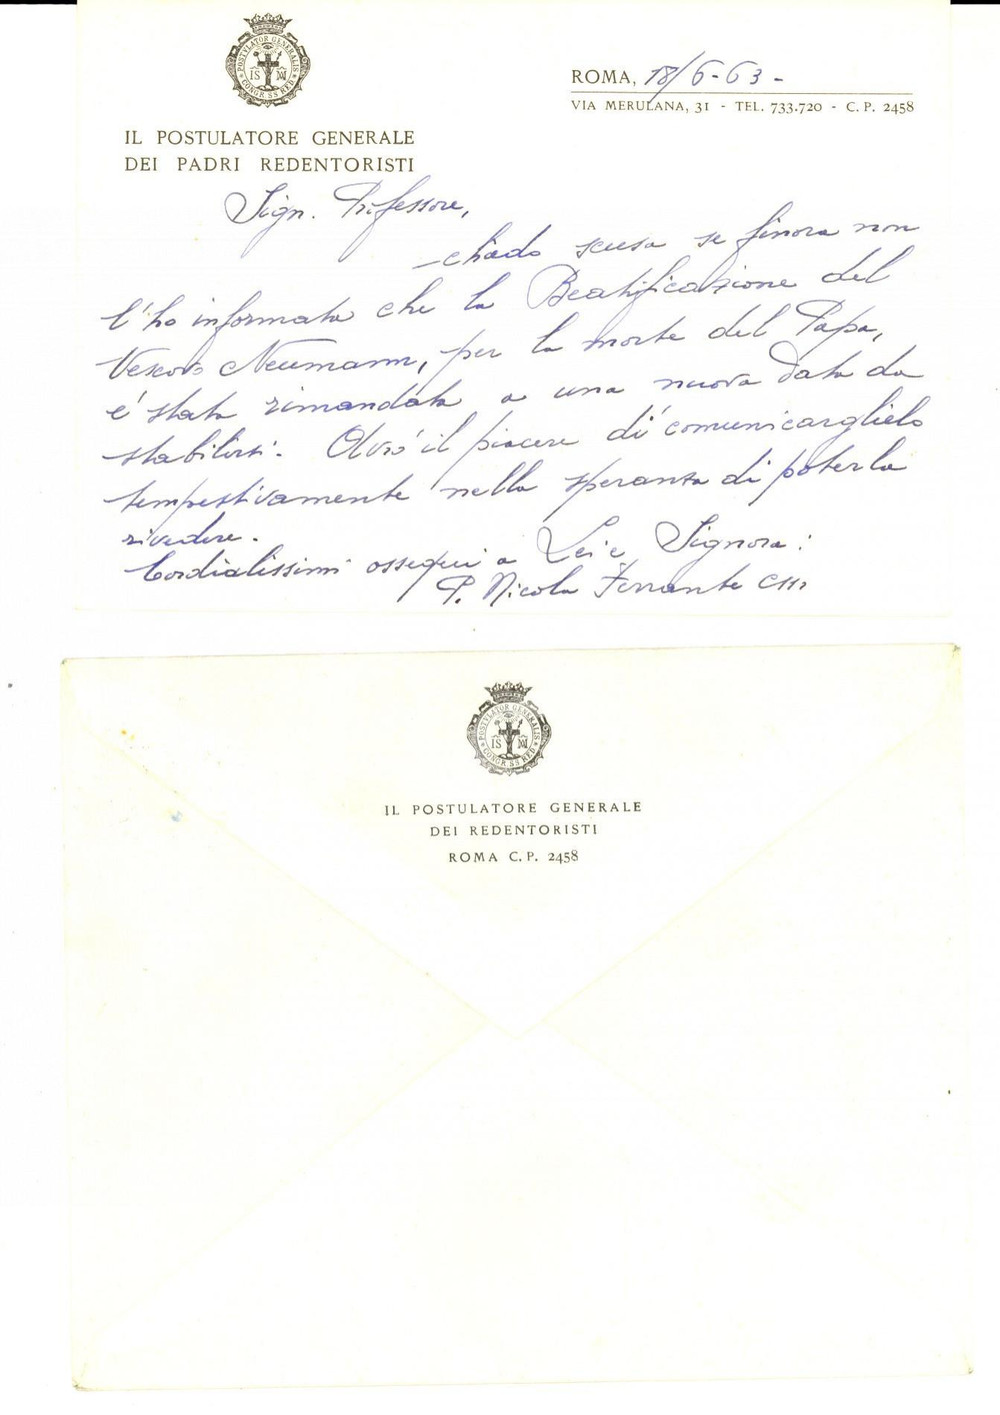 POSTVLATOR GENERALIS
CONGR. SS. RED.
IL POSTULATORE GENERALE
DEI PADRI REDENTORISTI
ROMA, 18/6-63-
VIA MERULANA, 31 - TEL. 733.720 - C. P. 2458
Sign. Professore,
chiedo scusa se finora non
l'ho informata che la Beatificazione del
Vescovo Neumann, per la morte del Papa,
e' stata rimandata a una nuova data da
stabilirsi. Avrò il piacere di comunicarglielo
tempestivamente nella speranza di poterla
rivedere.
Cordialissimi ossequi a Lei e Signora:
P. Nicola Ferrante CSSR
POSTVLATOR GENERALIS
CONGR. SS. RED.
IL POSTULATORE GENERALE
DEI REDENTORISTI
ROMA C. P. 2458